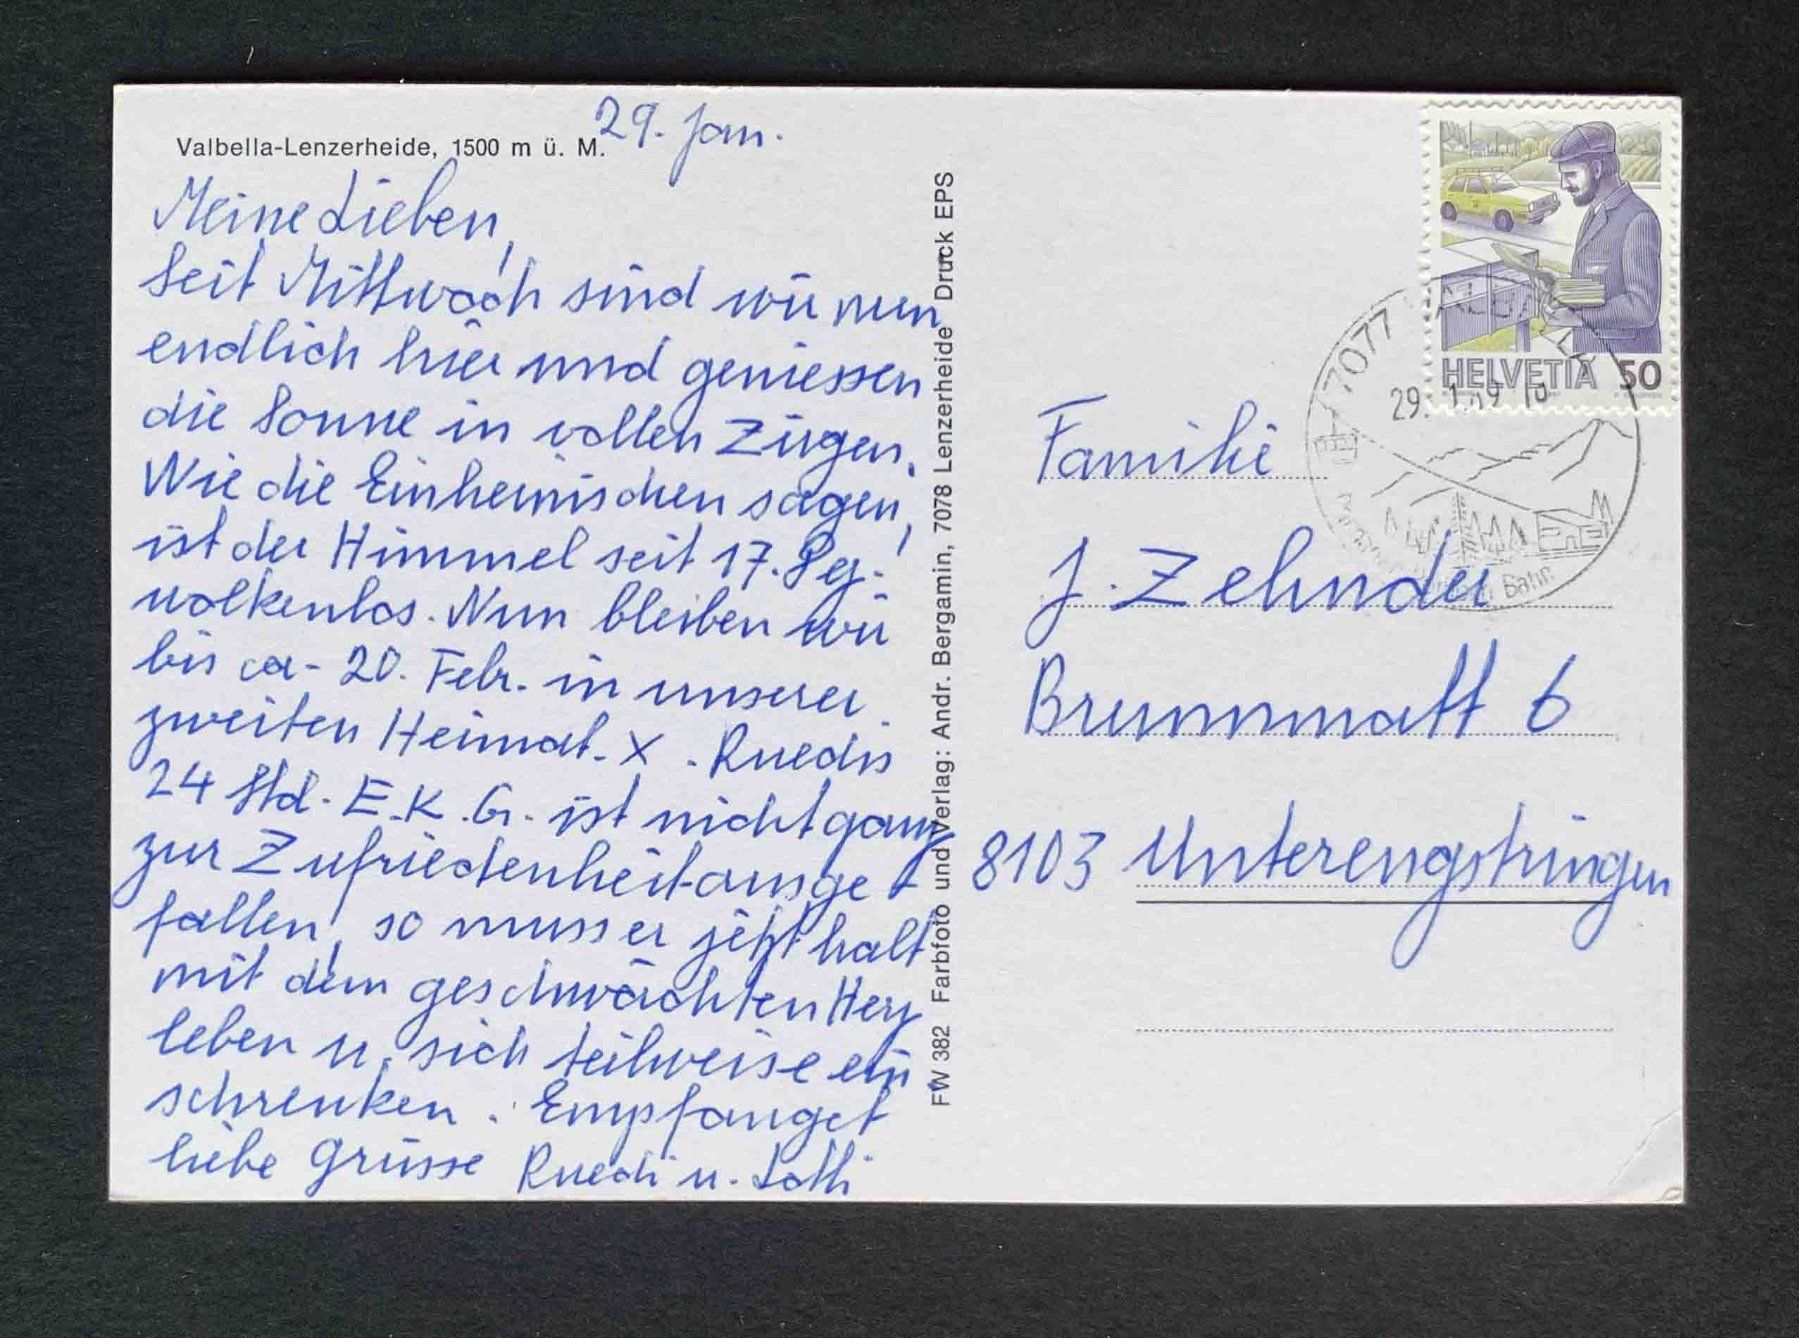 Valbella-Lenzerheide, 1500 m ü. M.
29. Jan.
Meine Lieben,
Seit Mittwoch sind wir nun
endlich hier und geniessen
die Sonne in vollen Zügen.
Wie die Einheimischen sagen,
ist der Himmel seit 17. Dez.
wolkenlos. Nun bleiben wir
bis ca. 20. Febr. in unserer
zweiten Heimat. X. Ruedis
24 Std. E.K.G. ist nicht ganz
zur Zufriedenheit ausge-
fallen, so muss er jetzt halt
mit dem geschwächten Herz
leben u. sich teilweise ein
schrenken. Empfanget
liebe Grüsse Ruedi u. Lotti
FW 382 Farbfoto und Verlag: Andr. Bergamin, 7078 Lenzerheide Druck EPS
HELVETIA 50
7077 VALBELLA
29. 1.
Bahn
Familie
J. Zehnder
Brunnmatt 6
8103 Unterengstringen